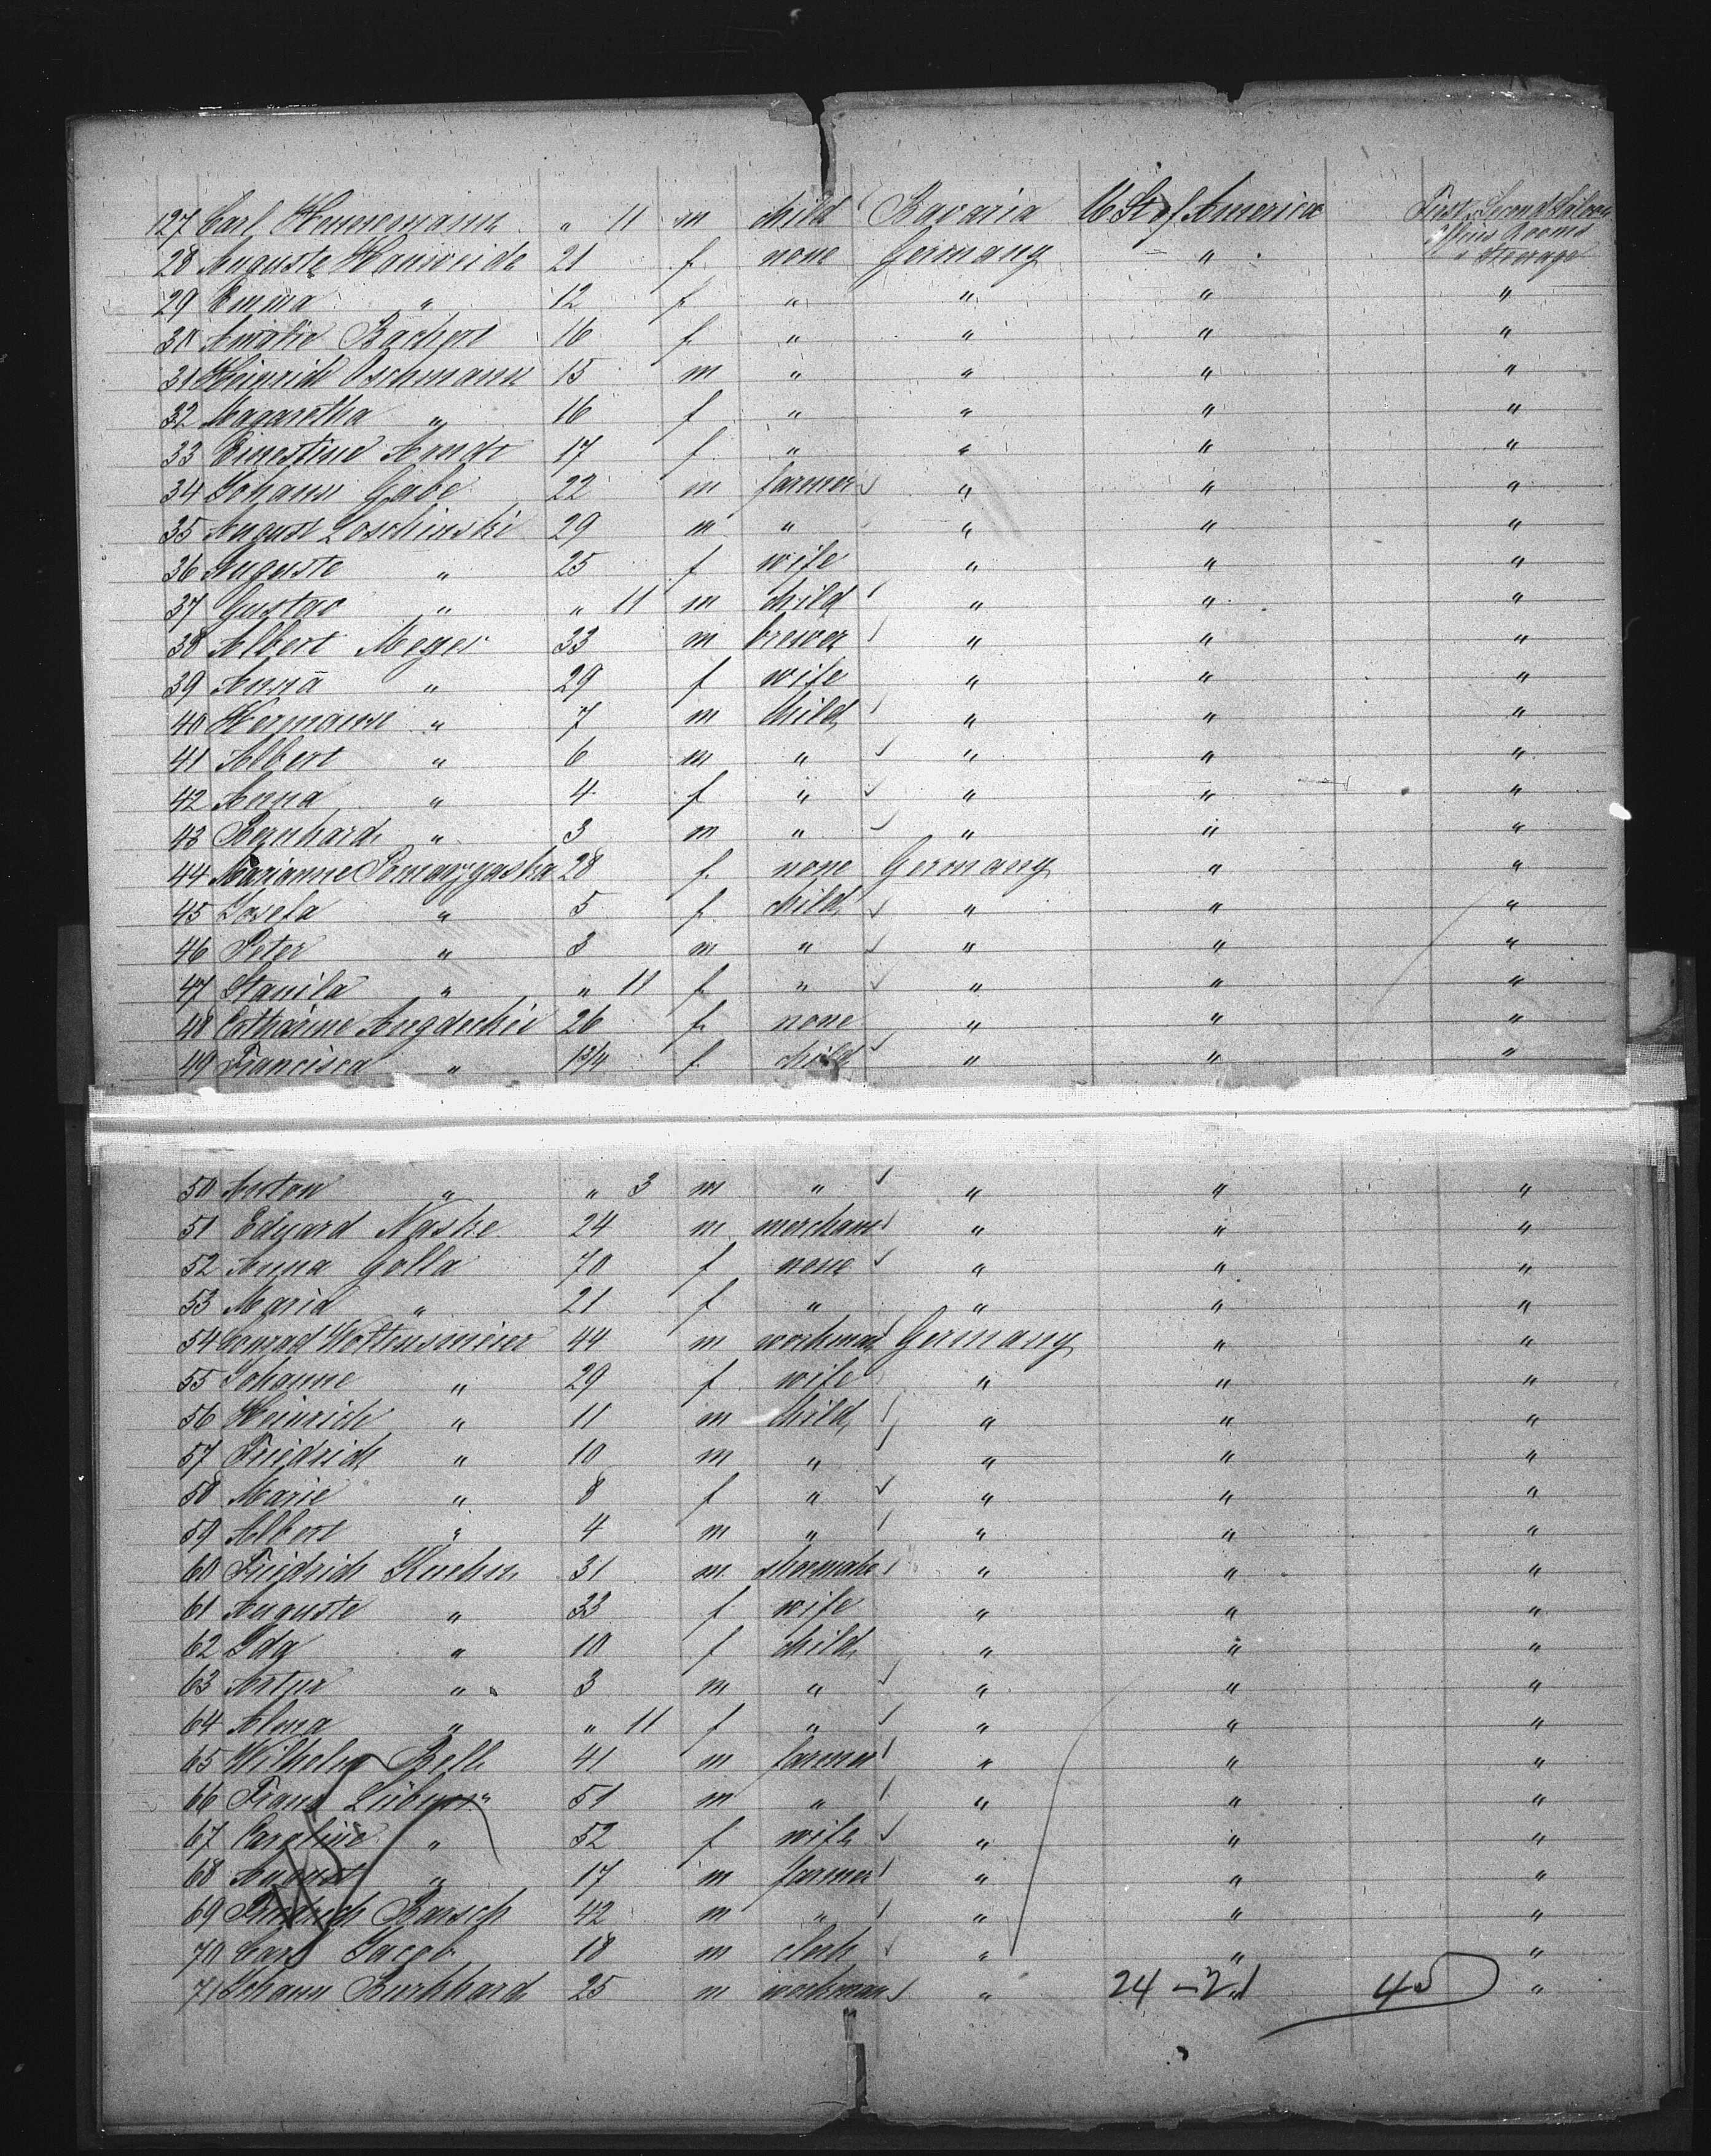 127 Carl Hennemann " 11 m child Bavaria U St of America First Second Saloon
Offrs Rooms
28 Auguste Hanweide 21 f none Germany " " Sterage
29 Emma " 12 f " " " "
30 Amalie Bachert 16 f " " " "
31 Heinrich Oschmann 15 m " " " "
32 Magaretha " 16 f " " " "
33 Ernestine Arndt 17 f " " " "
34 Johann Gabe 22 m farmer " " "
35 August Loschinski 29 m " " " "
36 Auguste " 25 f wife " " "
37 Gustav " " 11 m child " " "
38 Albert Meyer 33 m brewer " " "
39 Anna " 29 f wife " " "
40 Hermann " 7 m child " " "
41 Albert " 6 m " " " "
42 Anna " 4 f " " " "
43 Bernhard " 3 m " " " "
44 Marianne 28 f none Germany " "
45 Josefa " 5 f child " " "
46 Peter " 3 m " " " "
47 Stanila " " 11 f " " " "
48 Catharine 26 f none " " "
49 Francisca " 1 3/4 f child " " "
50 Anton " " 3 m " " " "
51 Eduard Naske 24 m merchant " " "
52 Anna Golla 70 f none " " "
53 Maria " 21 f " " " "
54 Conrad Woltensmeier 44 m workman Germany " "
55 Johanne " 29 f wife " " "
56 Heinrich " 11 m child " " "
57 Friedrich " 10 m " " " "
58 Marie " 8 f " " " "
59 Albert " 4 m " " " "
60 Friedrich Kuehn 31 m shoemake " " "
61 Auguste " 33 f wife " " "
62 Ida " 10 f child " " "
63 Artur " 3 m " " " "
64 Alma " " 11 f " " " "
65 Wilhelm Bell 41 m farmer " " "
66 Franz 51 m " " " "
67 Caroline " 52 f wife " " "
68 August " 17 m farmer " " "
69 Friedrich Barsch 42 m " " " "
70 Carl Jacob 18 m clerk " " "
71 Johann Burkhard 25 m workman " " "
24 - 21 45